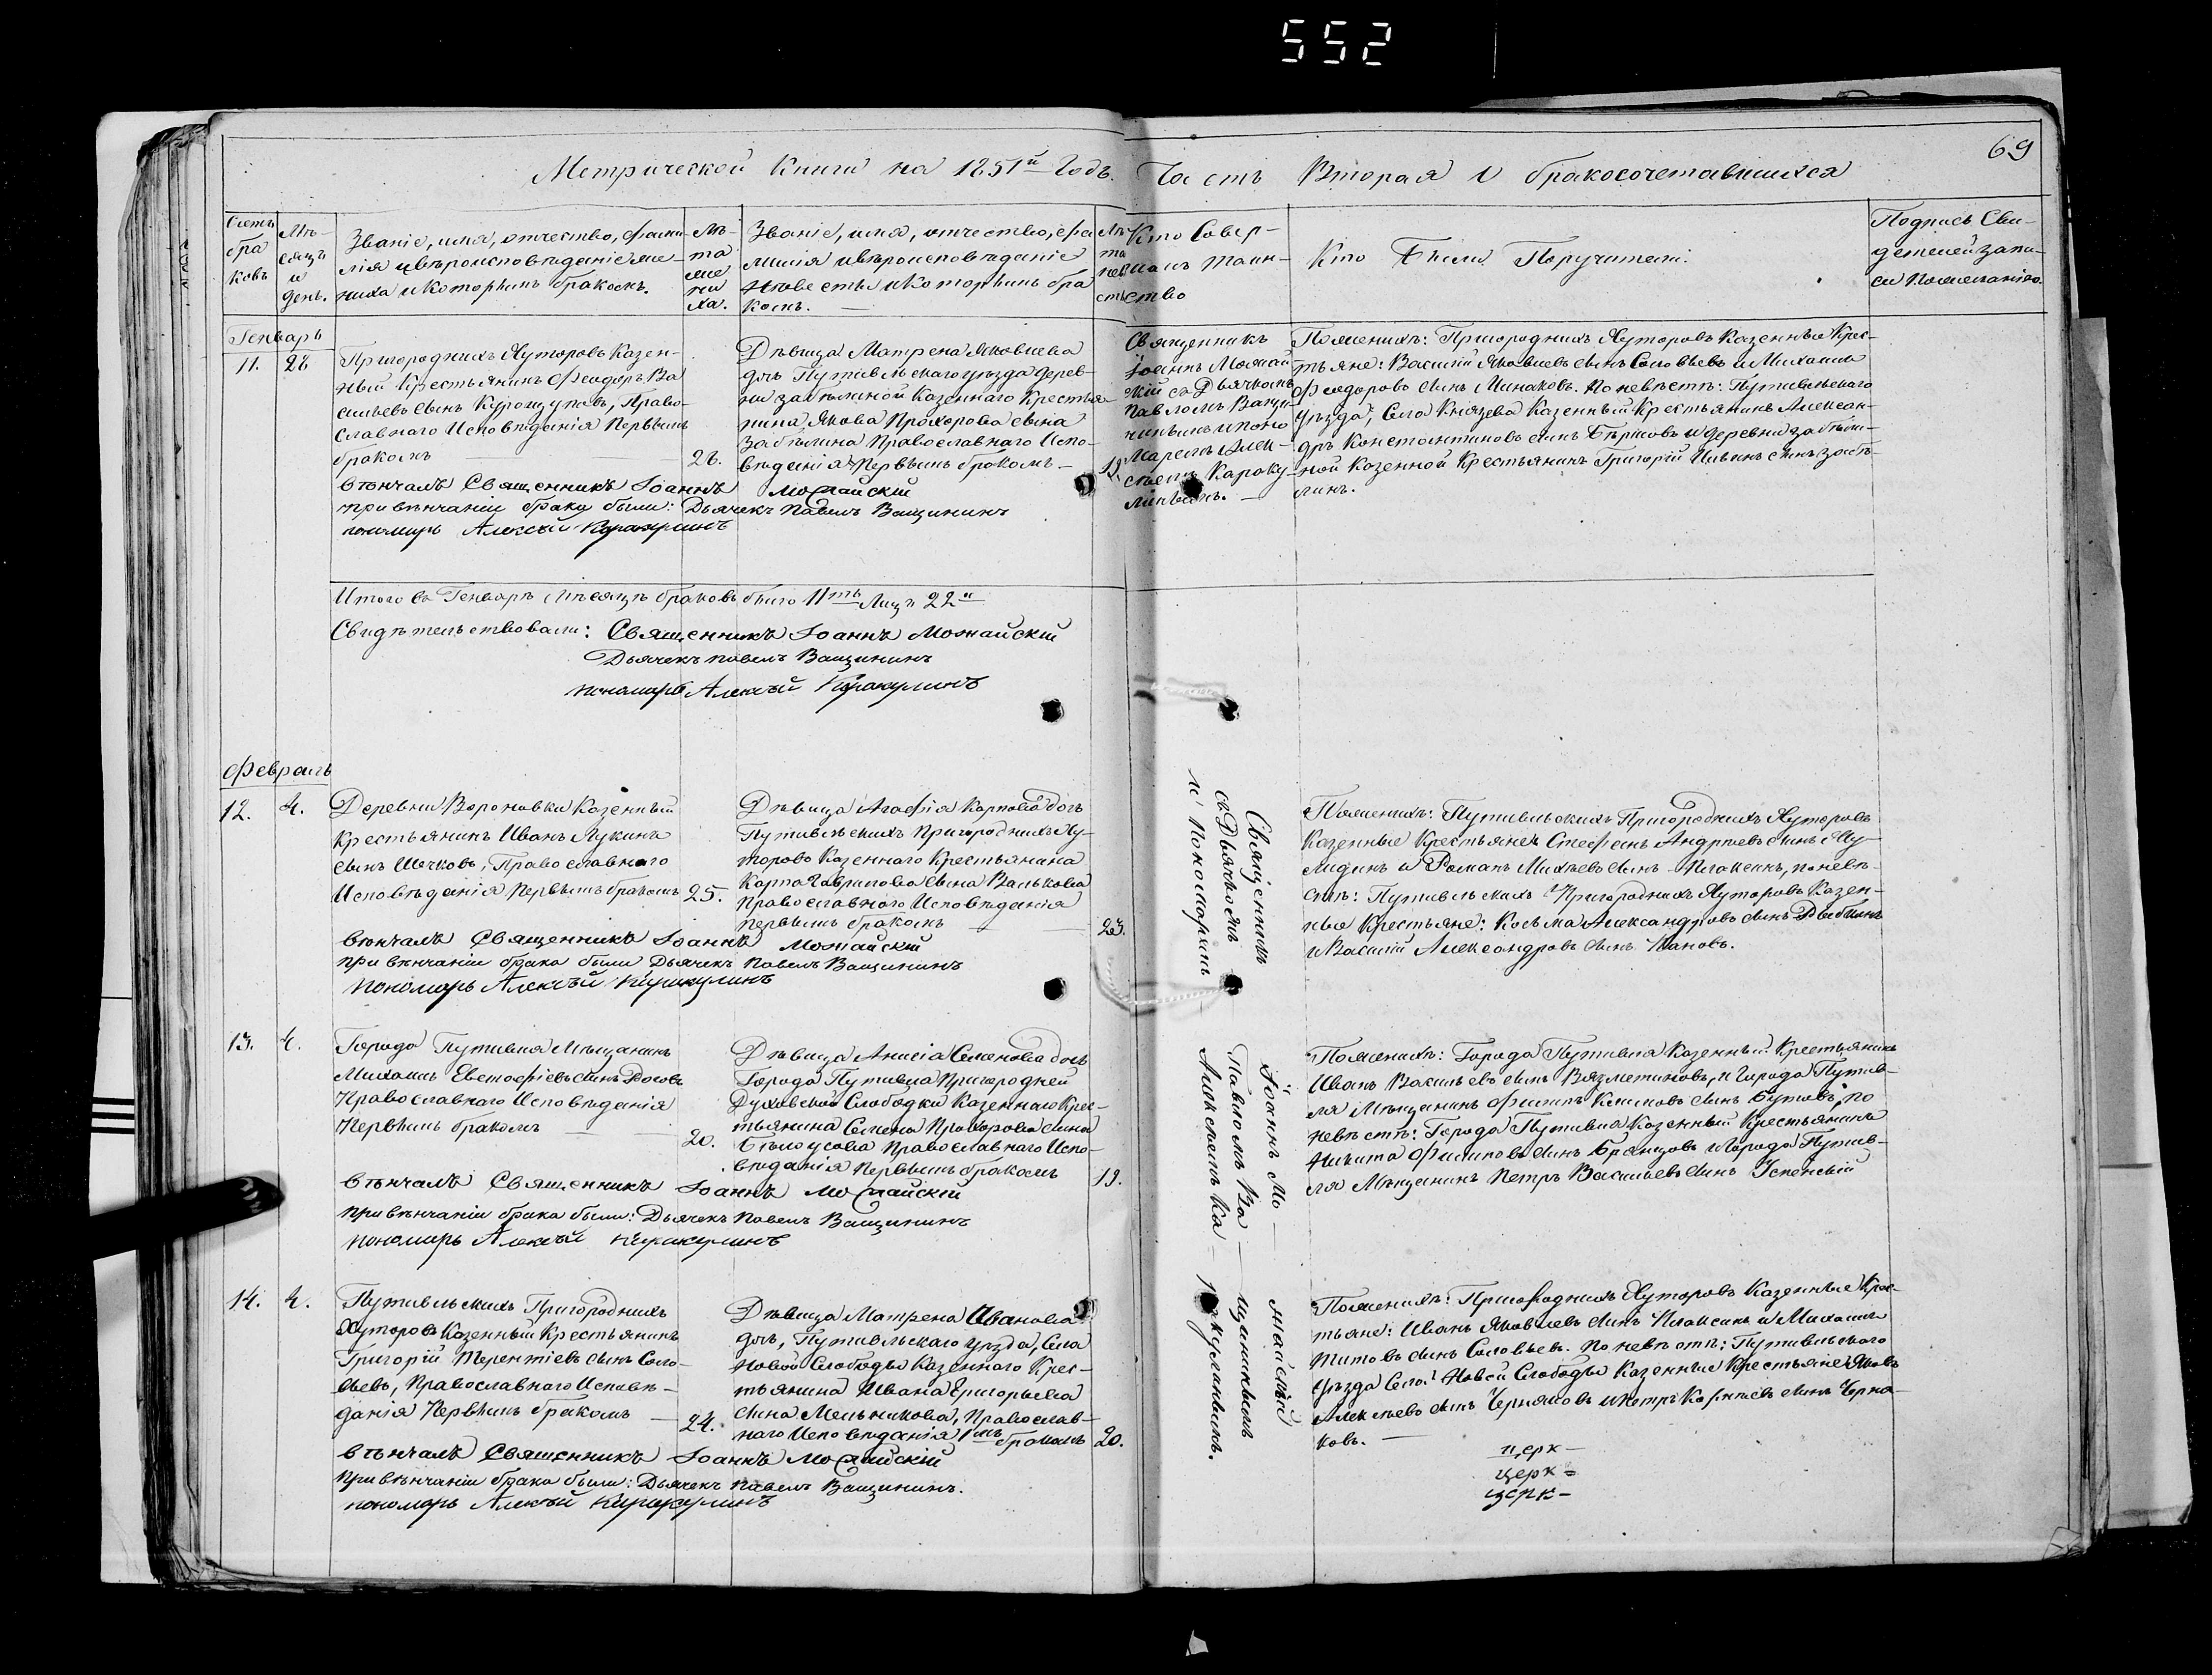 552
69
Метрической Книги на 1851й Годъ. Часть Вторая О бракосочетавшихся
Счетъ браковъ
Мѣсяцъ и день.
Званіе, имя, отчество, фамилія и вѣроисповѣданіе жениха и которымъ бракомъ.
Лѣта жениха.
Званіе, имя, отчество, фамилія и вѣроисповѣданіе невѣсты и которымъ бракомъ.
Лѣта невѣсты
Кто Совершалъ таинство
Кто были Поручители.
Подпись Свидетелей записи по желанію.
Генварь
11. 28
Пригородныхъ Хуторовъ Казен-
ный Крестьянинъ Феодоръ Ва
сильевъ сынъ Право-
славнаго Исповѣданія Первымъ
бракомъ
26.
Дѣвица Матрена Яковлева
дочь Путивльскаго уѣзда дерев-
ни Забѣлиной Казеннаго Крестья
нина Якова Прохорова сына
Забѣлина Православнаго Испо-
вѣданія Первымъ бракомъ
19.
Священникъ
Іоаннъ Можай
скій съ Дьячкомъ
Павломъ Ващи
нинымъ и поно
маремъ Алек-
сѣемъ Караку-
линымъ.
По женихѣ: Пригородныхъ Хуторовъ Казенные Крес-
тьяне: Василій Яковлевъ сынъ Соловьевъ и Михаилъ
Феодоровъ сынъ Минаковъ. По невѣстѣ: Путивльскаго
уѣзда, Села Князева Казенный Крестьянинъ Алексан-
дръ Константиновъ сынъ и деревни Забѣли-
ной Казенной Крестьянинъ Григорій сынъ Забѣ-
линъ.
вѣнчалъ Священникъ Іоаннъ Можайскій
при вѣнчаніи брака были: Дьячекъ Павелъ Ващининъ
пономарь Алексѣй Каракулинъ
Итого въ Генварѣ мѣсяцѣ браковъ было 11ть Лицъ 22ъ
Свидѣтельствовали: Священникъ Іоаннъ Можайскій
Дьячекъ Павелъ Ващининъ
пономарь Алексѣй Каракулинъ
Февраль
12. 4.
Деревни Вороновки Казенный
Крестьянинъ Иванъ Лукинъ
сынъ Шечковъ, Православнаго
Исповѣданія Первымъ бракомъ
25.
Дѣвица Агафія Карпова дочь
Путивльскихъ Пригородныхъ Ху-
торовъ Казеннаго Крестьянина
Карпа Гаврилова сына Валькова
Православнаго Исповѣданія
первымъ бракомъ
23.
По женихѣ: Путивльскихъ Пригородныхъ Хуторовъ
Казенные Крестьяне: Стефанъ Андреевъ сынъ
и Романъ Михѣевъ сынъ Плаксинъ, по невѣ-
стѣ: Путивльскихъ Пригородныхъ Хуторовъ Казен-
ные Крестьяне: Косьма Александровъ сынъ
и Василій Александровъ сынъ Ивановъ.
вѣнчалъ Священникъ Іоаннъ Можайскій
при вѣнчаніи брака были Дьячекъ Павелъ Ващининъ
пономарь Алексѣй Каракулинъ
Священникъ Іоаннъ Можайскій
съ Дьячкомъ Павломъ Ващининымъ
и Пономаремъ Алексѣемъ Каракулинымъ.
13. 4.
Города Путивля Мѣщанинъ
Михаилъ Евстафіевъ сынъ
Православнаго Исповѣданія
Первымъ бракомъ
20.
Дѣвица Анисія Семенова дочь
Города Путивля Пригородней
Духовской Слободки Казеннаго Крес-
тьянина Семена Прохорова сына
Бѣлоусова Православнаго Испо-
вѣданія Первымъ бракомъ
19.
По женихѣ: Города Путивля Казенный Крестьянинъ
Иванъ Васильевъ сынъ Вязметиновъ, и Города Путив-
ля Мѣщанинъ Филипъ Климовъ сынъ Бутовъ, по
невѣстѣ: Города Путивля Казенный Крестьянинъ
Никита Филиповъ сынъ Брянцовъ и Города Путив-
ля Мѣщанинъ Петръ Васильевъ сынъ Успенскій
вѣнчалъ Священникъ Іоаннъ Можайскій
при вѣнчаніи брака были: Дьячекъ Павелъ Ващининъ
пономарь Алексѣй Каракулинъ
14. 4.
Путивльскихъ Пригородныхъ
Хуторовъ Казенный Крестьянинъ
Григорій Терентіевъ сынъ Соло-
вьевъ, Православнаго Исповѣ-
данія Первымъ бракомъ
24.
Дѣвица Матрена Иванова
дочь, Путивльскаго уѣзда, Села
Новой Слободы Казеннаго Крес-
тьянина Ивана Григорьева
сына Мельникова, Православ-
наго Исповѣданія 1мъ бракомъ
20.
По женихѣ: Пригородныхъ Хуторовъ Казенные Крес-
тьяне: Иванъ Яковлевъ сынъ Плаксинъ и Михаилъ
Титовъ сынъ Соловьевъ. По невѣстѣ: Путивльскаго
уѣзда Села Новой Слободы Казенные Крестьяне: Яковъ
Алексѣевъ сынъ Черняковъ и Петръ Корнѣевъ сынъ Черня-
ковъ.
вѣнчалъ Священникъ Іоаннъ Можайскій
при вѣнчаніи брака были: Дьячекъ Павелъ Ващининъ.
пономарь Алексѣй Каракулинъ
церк-
церк=
церк-